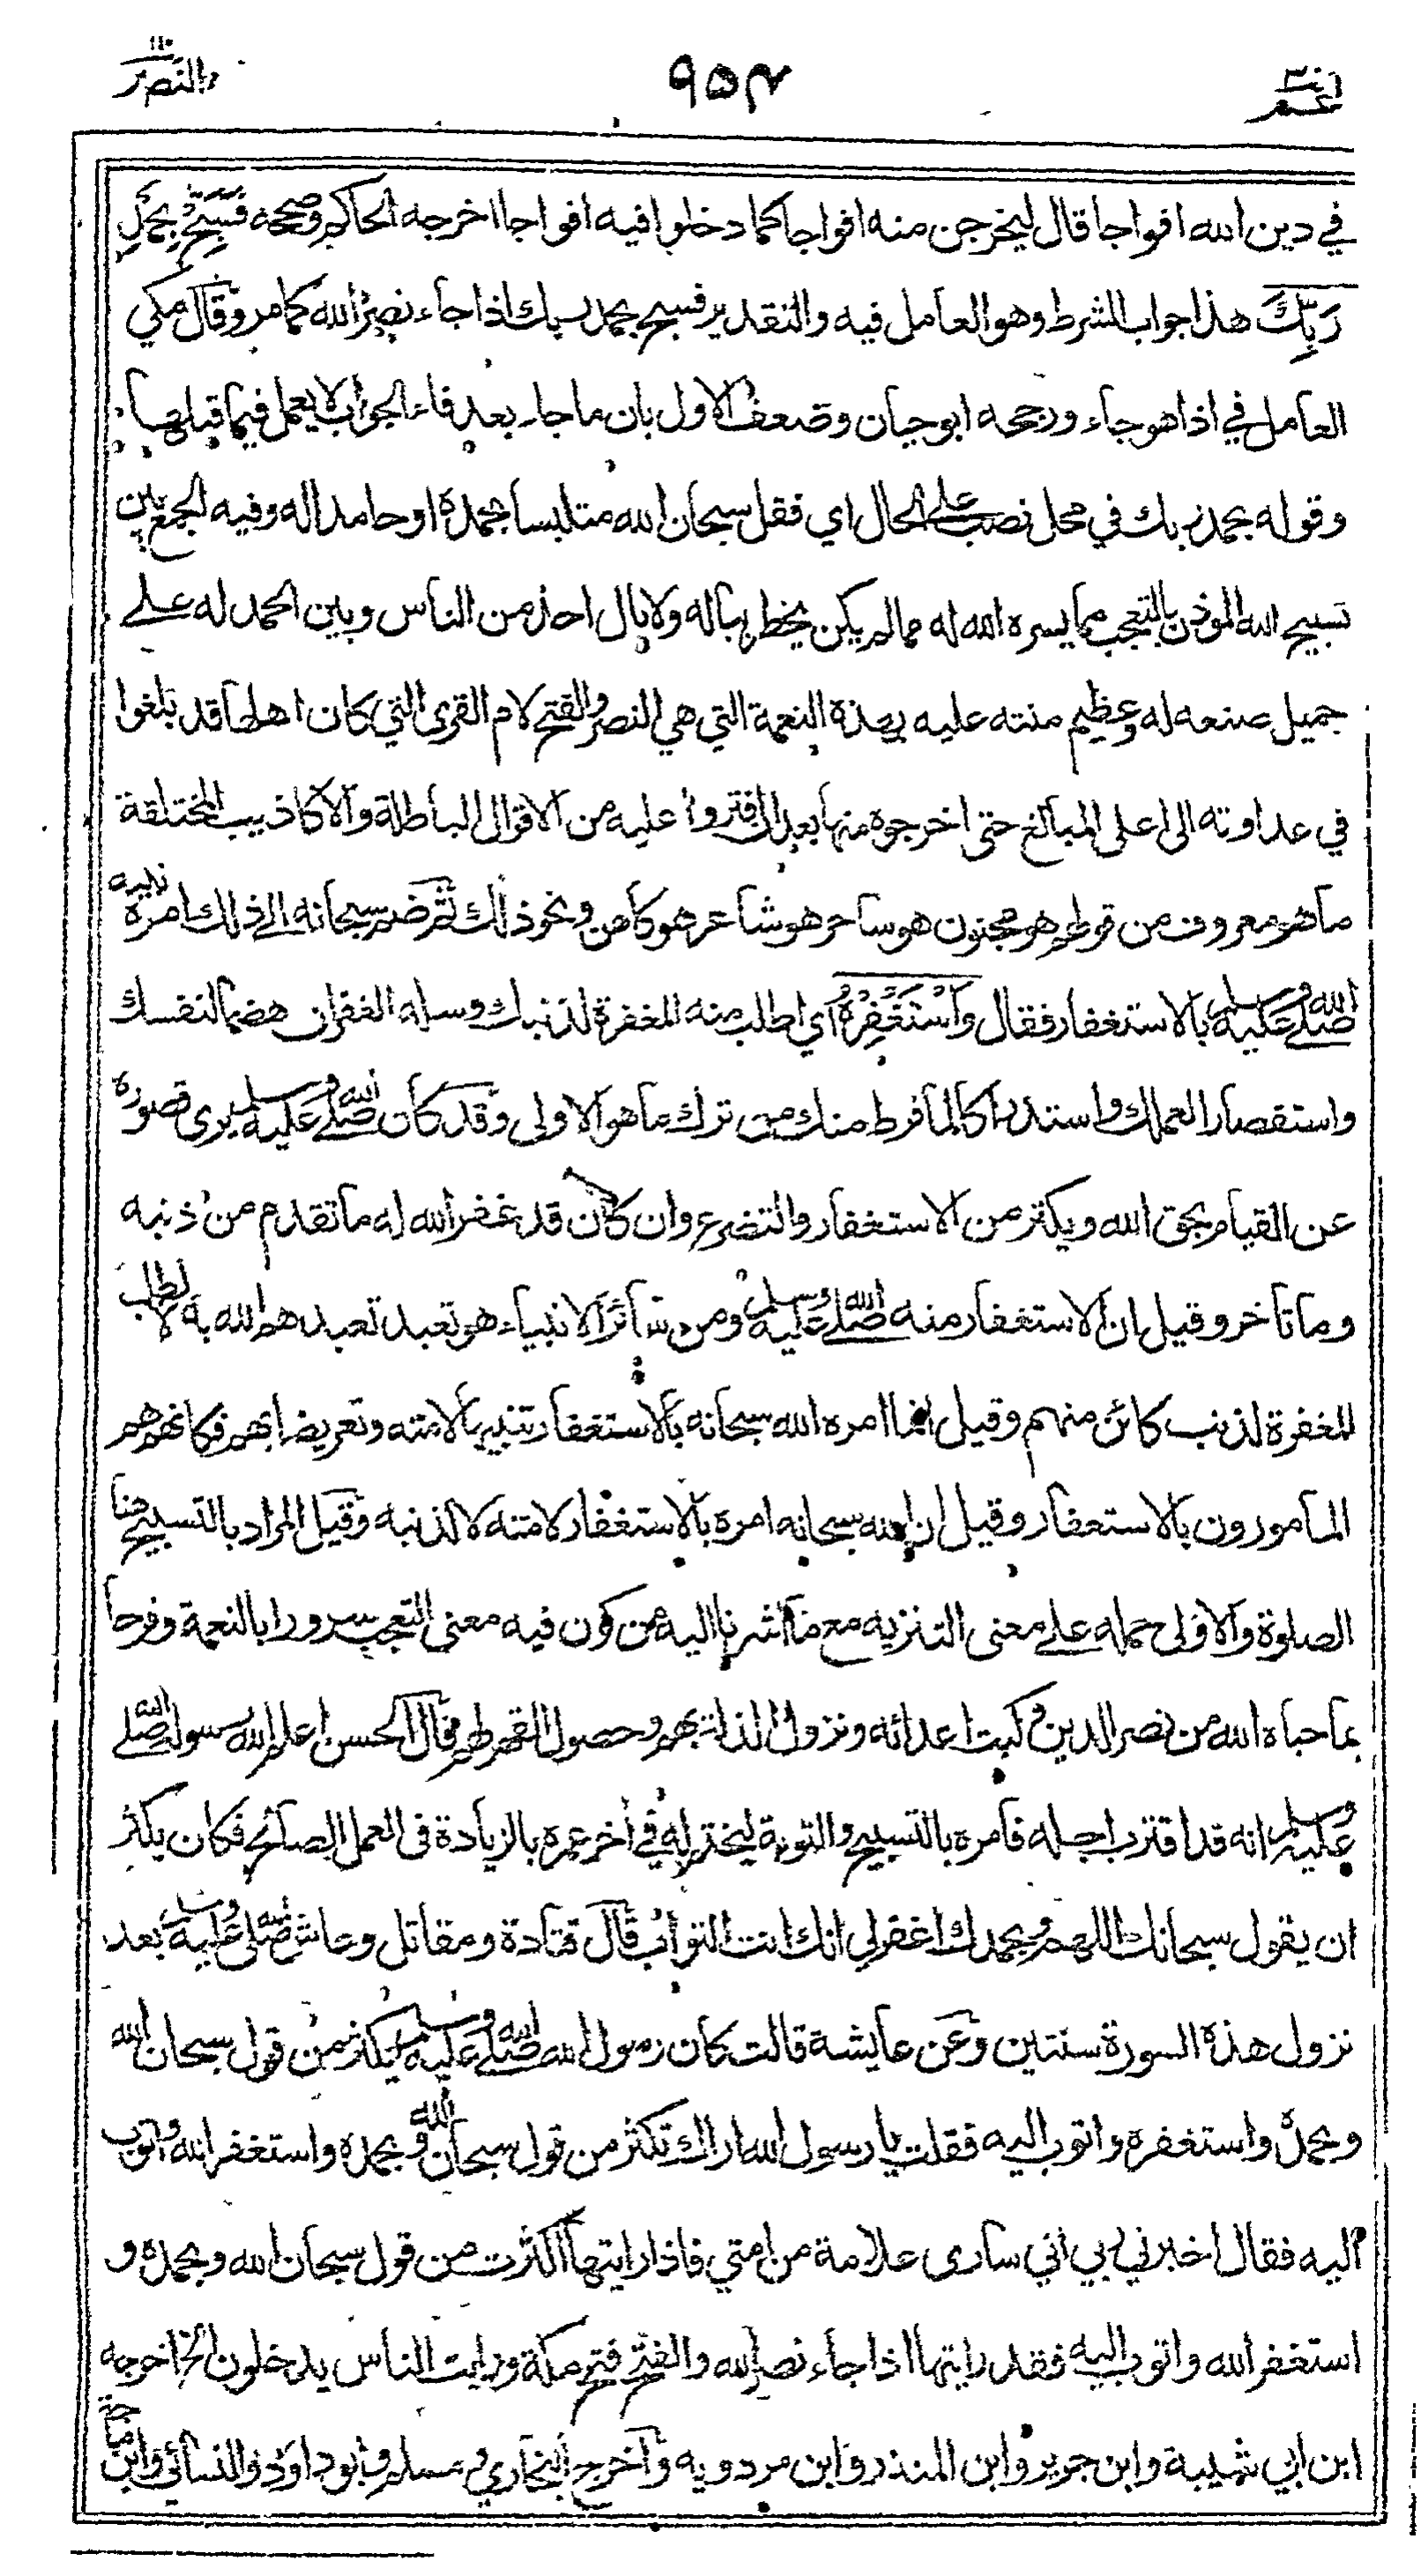 النصر ١١٠
٩٥٤
عم ٣٠
في دين الله افواجا قال ليخرجن منه افواجا كما دخلوا فيه افواجا اخرجه الحاكم وصححه فَسَبِّحْ بِحَمْدِ
رَبِّكَ هذا جواب الشرط وهو العامل فيه والتقدير فسبح بحمد ربك اذا جاء نصر الله كما مر وقال مكي
العامل في اذا هو جاء ورجحه ابوحيان وضعف الاول بان ما جاء بعد فاء الجواب لا يعمل فيما قبلها
وقوله بحمد ربك في محل نصب على الحال اي فقل سبحان الله متلبسا بحمده او حامدا له وفيه الجمع بين
تسبيح الله الموذن بالتعجب مما يسره الله له مما لم يكن يخطر بباله ولا بال احد من الناس وبين الحمد له على
جميل صنعه له وعظيم منته عليه بهذه النعمة التي هي النصر والفتح لام القرى التي كان اهلها قد بلغوا
في عداوته الى اعلى المبالغ حتى اخرجوه منها بعد ان افتروا عليه من الاقوال الباطلة والاكاذيب المختلقة
ما هو معروف من قولهم هو مجنون هو ساحر هو شاعر هو كاهن ونحو ذلك ثم ضم سبحانه الى ذلك امره نبيه
صلى الله عليه وسلم بالاستغفار فقال وَاسْتَغْفِرْهُ اي اطلب منه المغفرة لذنبك وسله الغفران هضما لنفسك
واستقصارا لعملك واستدراكا لما فرط منك من ترك ما هو الاولى وقد كان صلى الله عليه وسلم يرى قصوره
عن القيام بحق الله ويكثر من الاستغفار والتضرع وان كان قد غفر الله له ما تقدم من ذنبه
وما تأخر وقيل ان الاستغفار منه صلى الله عليه وسلم ومن سائر الانبياء هو تعبد تعبدهم الله به لا لطلب
المغفرة لذنب كائن منهم وقيل انما امره الله سبحانه بالاستغفار تنبيها لامته وتعريضا بهم فكانهم هم
المأمورون بالاستغفار وقيل ان الله سبحانه امره بالاستغفار لامته لا لذنبه وقيل المراد بالتسبيح هنا
الصلوة والاولى حمله على معنى التنزيه مع ما اشرنا اليه من كون فيه معنى التعجب سرورا بالنعمة وفرحا
بما حباه الله من نصر الدين وكبت اعدائه ونزول الذلة بهم وحصول القهر لهم قال الحسن اعلم الله رسوله صلى الله
عليه وسلم انه قد اقترب اجله فامره بالتسبيح والتوبة ليختم له في أخر عمره بالزيادة في العمل الصالح فكان يكثر
ان يقول سبحانك اللهم وبحمدك اغفر لي انك انت التواب قال قتادة ومقاتل وعاش صلى الله عليه وسلم بعد
نزول هذه السورة سنتين وعن عايشة قالت كان رسول الله صلى الله عليه وسلم يكثر من قول سبحان الله
وبحمده واستغفره واتوب اليه فقلت يا رسول الله اراك تكثر من قول سبحان الله وبحمده واستغفر الله واتوب
اليه فقال اخبرني ربي اني سارى علامة من امتي فاذا رايتها اكثرت من قول سبحان الله وبحمده و
استغفر الله واتوب اليه فقد رايتها اذا جاء نصر الله والفتح فتح مكة ورايت الناس يدخلون الخ اخرجه
ابن ابي شيبة وابن جرير وابن المنذر وابن مردويه وأخرج البخاري ومسلم وابوداؤد والنسائي وابن ماجة